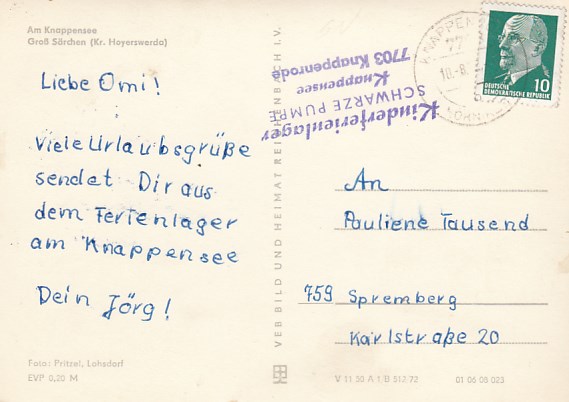 Am Knappensee
Groß Särchen (Kr. Hoyerswerda)
Liebe Omi!
Viele Urlaubsgrüße
sendet Dir aus
dem Ferienlager
am Knappensee
Dein Jörg!
Foto: Pritzel, Lohsdorf
EVP 0,20 M
VEB BILD UND HEIMAT REICHENBACH I.V.
Kinderferienlager
SCHWARZE PUMPE
Knappensee
7703 Knappenrode
10
DEUTSCHE
DEMOKRATISCHE REPUBLIK
An
Pauliene Tausend
759 Spremberg
Karlstraße 20
V 11 30 A 1 B 512 72 01 06 08 023